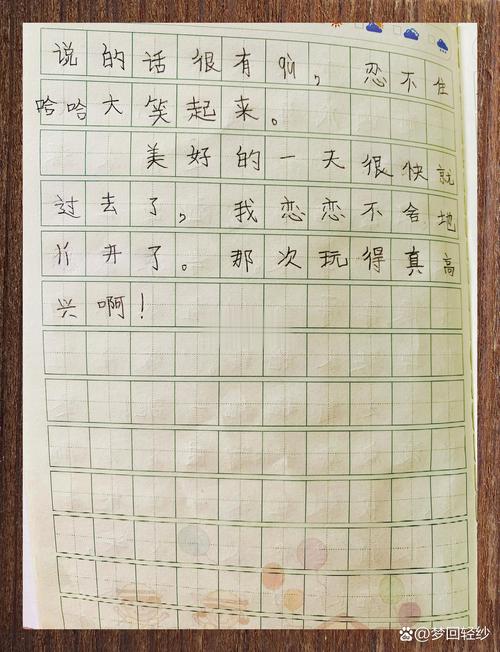 说的话很有qù，忍不住
哈哈大笑起来。
美好的一天很快就
过去了，我恋恋不舍地
离开了。那次玩得真高
兴啊！
@梦回轻纱